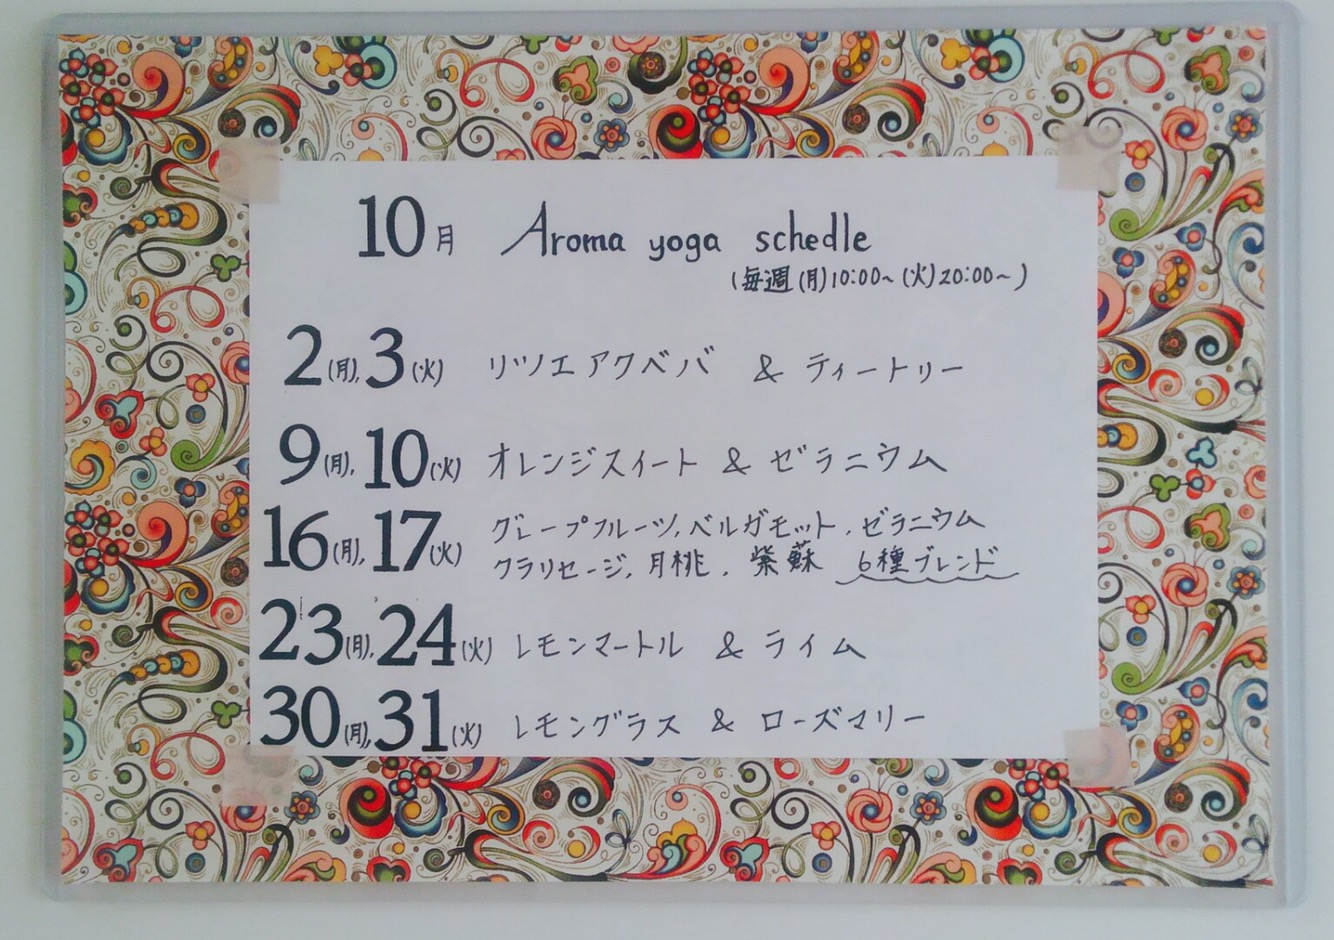 10月 Aroma yoga schedle
(毎週(月)10:00~(火)20:00~)
2(月),3(火) リツエアクベバ & ティートリー
9(月),10(火) オレンジスイート & ゼラニウム
16(月),17(火) グレープフルーツ,ベルガモット,ゼラニウム
クラリセージ,月桃,紫蘇 6種ブレンド
23(月),24(火) レモンマートル & ライム
30(月),31(火) レモングラス & ローズマリー